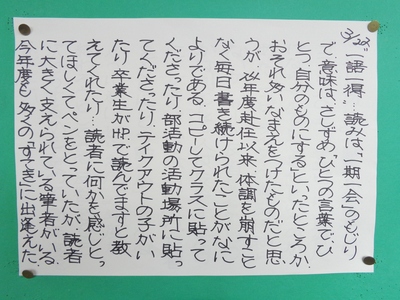 3/22 "一語一得"…読みは、「一期一会」のもじり
で、意味は、さしずめ「ひとつの言葉で、ひ
とつ、自分のものにする」といったところか。
おそれ多いなまえをつけたものだと思
うが、本年度赴任以来、体調を崩すこと
なく毎日書き続けられたことがなに
よりである。コピーしてクラスに貼って
くださったり、部活動の活動場所に貼っ
てくださったり、テイクアウトの子がい
たり、卒業生がH.P.で読んでますと教
えてくれたり…読者に何かを感じとっ
てほしくてペンをとっていたが、読者
に大きく支えられている筆者がいる。
今年度も、多くの「すてき」に出逢えた。